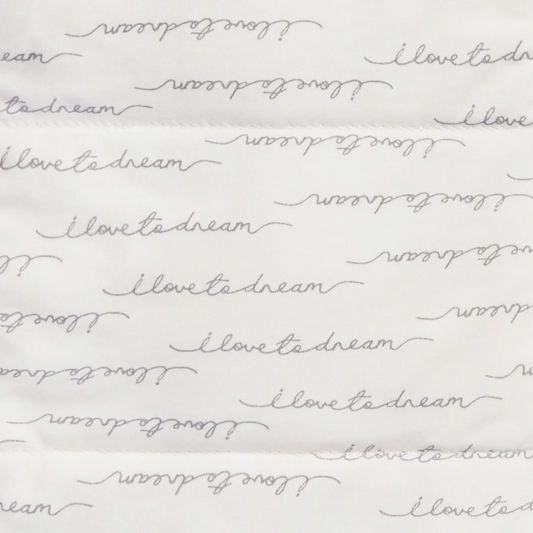 i love to dream
i love to d
eam
i love to dream
to dream
i love
i love to dream
i love to dream
i love to dream
i love to dream
i love to
i
i love to dream
dream
i love to
i love to dream
i love to dream
i love to dream
i love to dream
i love to dream
i love to dream
eam
i love to d